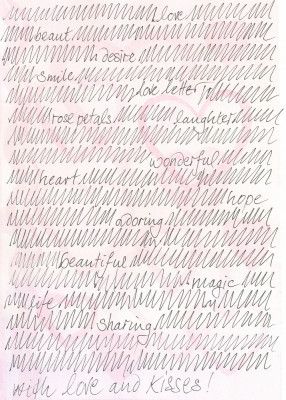 love
beaut
desire
smile
love letter
rose petals laughter
wonderful
heart
hope
adoring
beautiful
magic
life
sharing
with love and kisses!